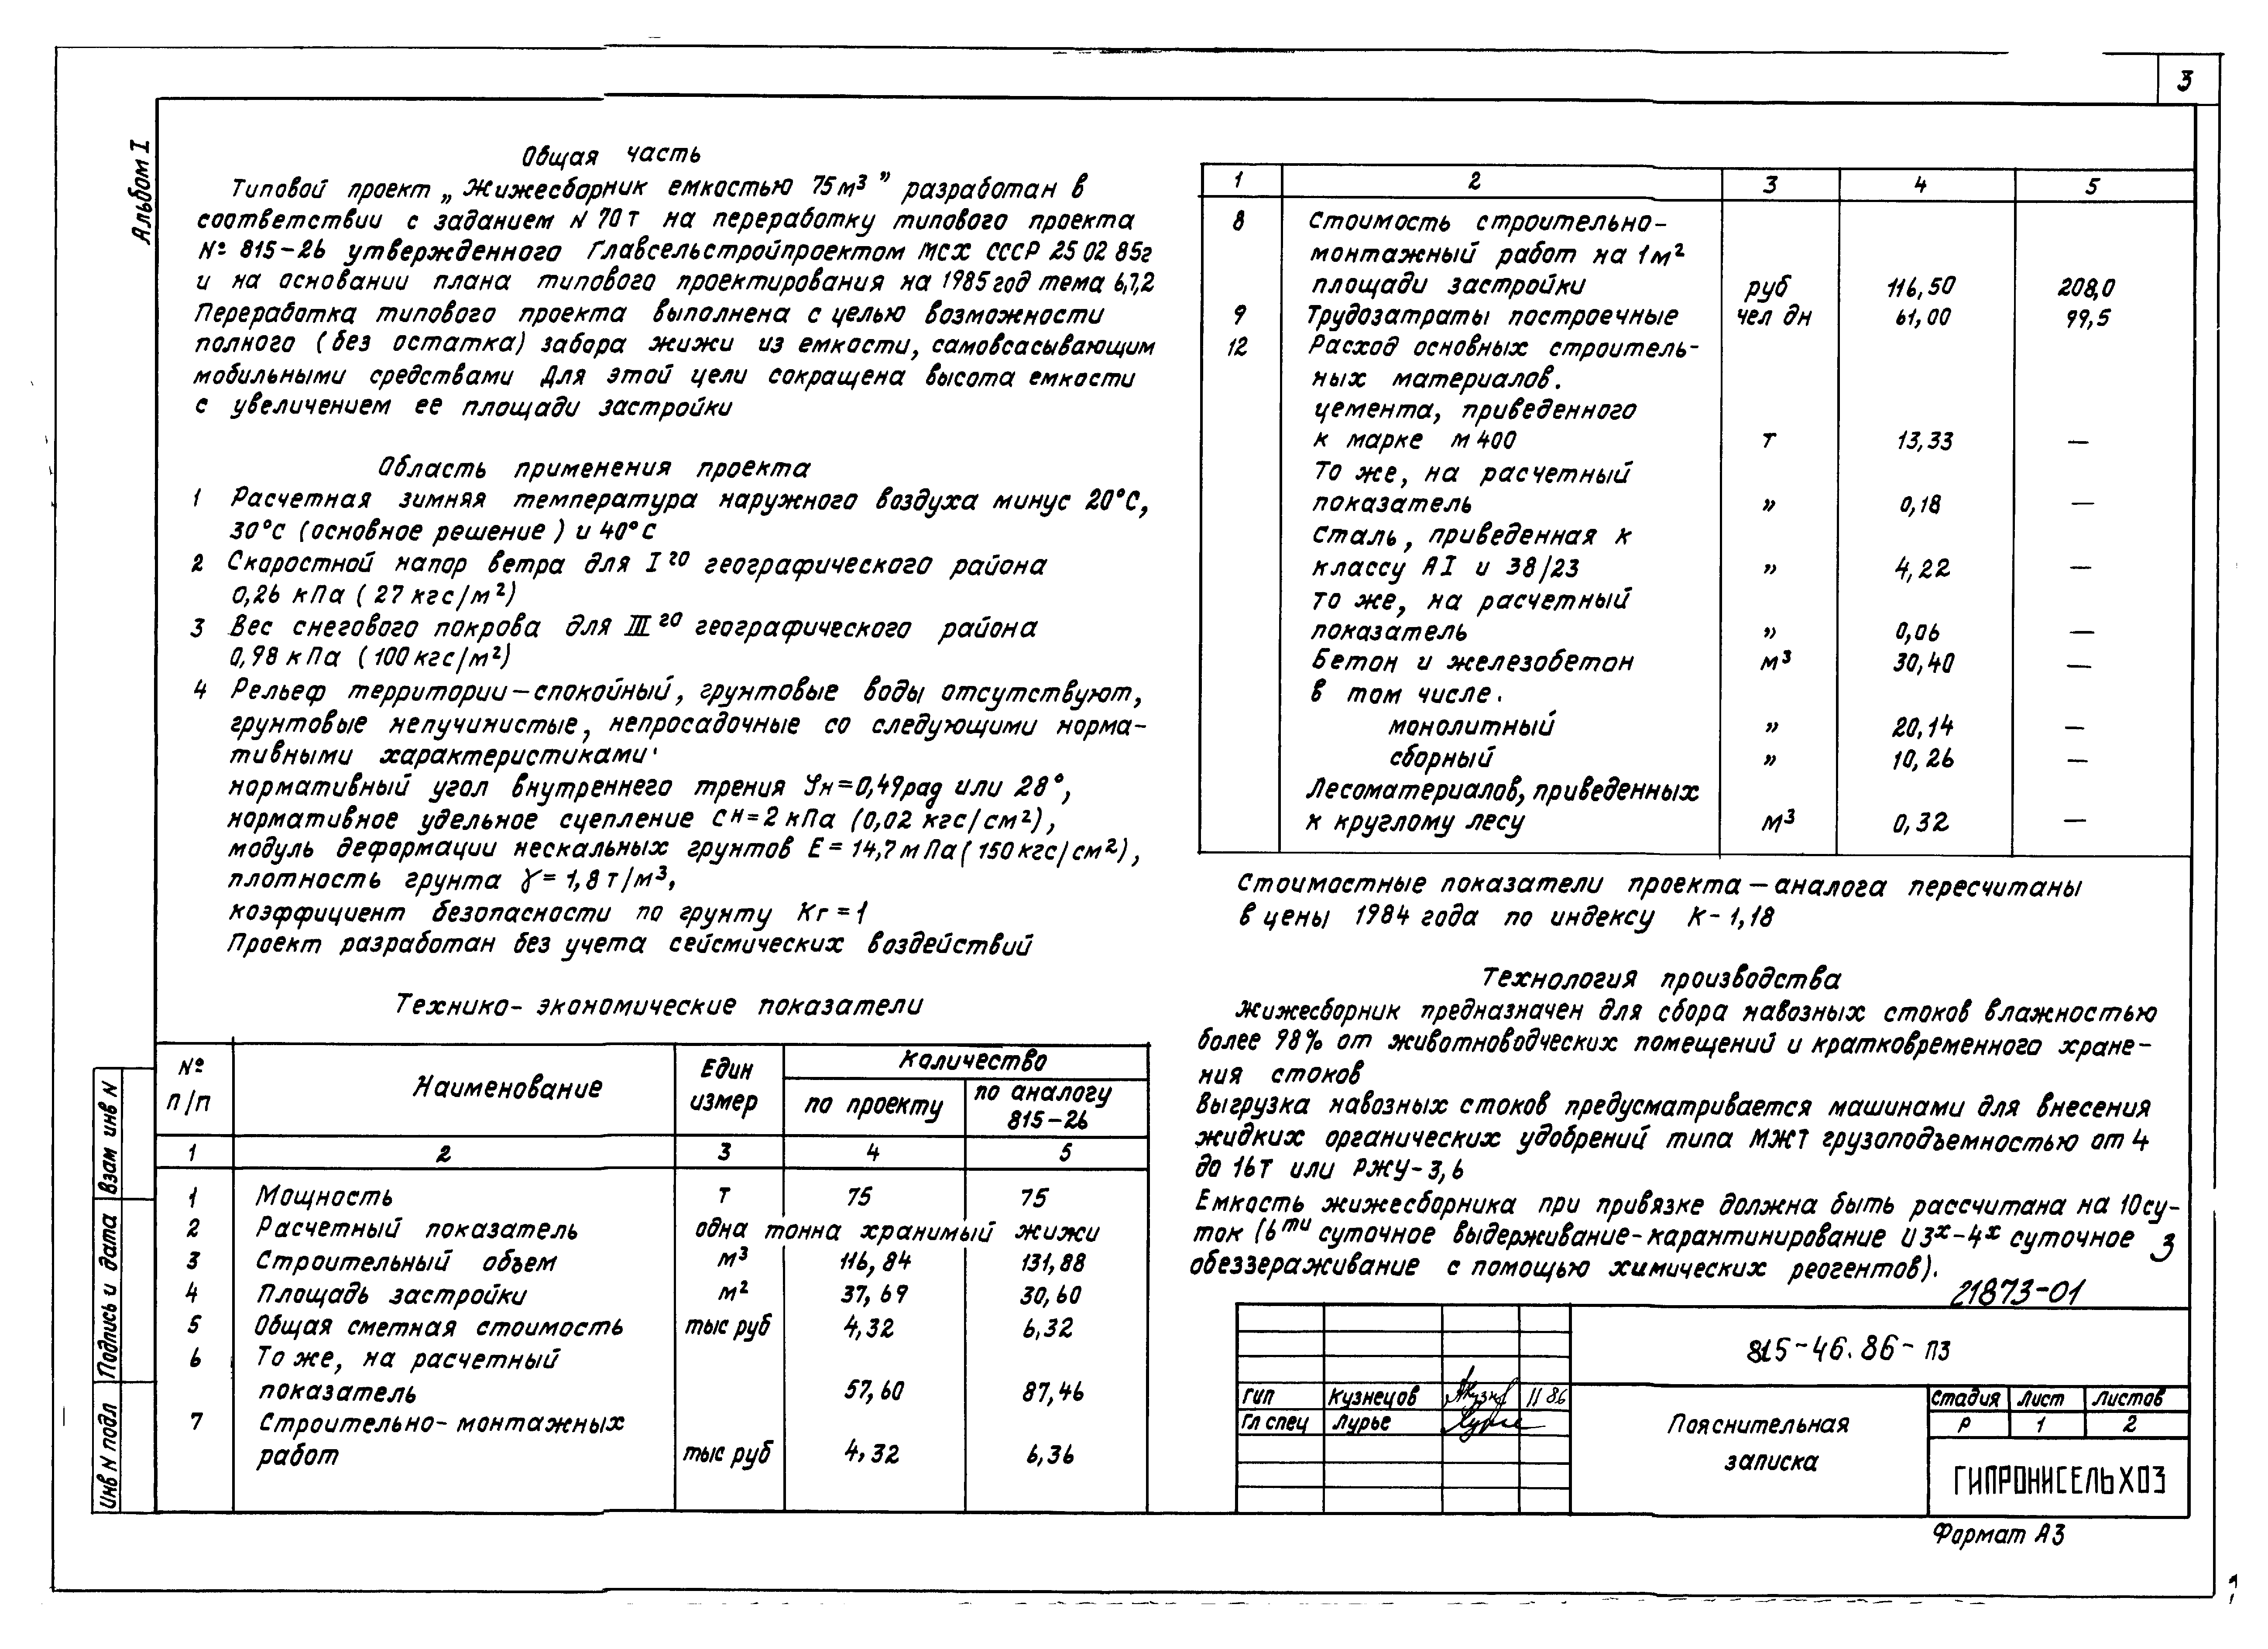 3
Альбом I
Общая часть
Типовой проект „Жижесборник емкостью 75м³” разработан в
соответствии с заданием N 70т на переработку типового проекта
№ 815-26 утвержденного Главсельстройпроектом МСХ СССР 25 02 85г
и на основании плана типового проектирования на 1985 год тема 6,7,2
Переработка типового проекта выполнена с целью возможности
полного (без остатка) забора жижи из емкости, самовсасывающим
мобильными средствами Для этой цели сокращена высота емкости
с увеличением ее площади застройки
Область применения проекта
1 Расчетная зимняя температура наружного воздуха минус 20°С,
30°С (основное решение) и 40°С
2 Скоростной напор ветра для I го географического района
0,26 кПа (27 кгс/м²)
3 Вес снегового покрова для III го географического района
0,98 кПа (100 кгс/м²)
4 Рельеф территории – спокойный, грунтовые воды отсутствуют,
грунтовые непучинистые, непросадочные со следующими норма-
тивными характеристиками·
нормативный угол внутреннего трения φн=0,49рад или 28°,
нормативное удельное сцепление Сн=2 кПа (0,02 кгс/см²),
модуль деформации нескальных грунтов Е=14,7мПа (150 кгс/см²),
плотность грунта γ=1,8 т/м³,
коэффициент безопасности по грунту Кг=1
Проект разработан без учета сейсмических воздействий
Технико-экономические показатели
№ п/п Наименование Един измер Количество
по проекту по аналогу 815-26
1 2 3 4 5
1 Мощность т 75 75
2 Расчетный показатель одна тонна хранимый жижи
3 Строительный объем м³ 116,84 131,88
4 Площадь застройки м² 37,69 30,60
5 Общая сметная стоимость тыс руб 4,32 6,32
6 То же, на расчетный
показатель 57,60 87,46
7 Строительно-монтажных
работ тыс руб 4,32 6,36
1 2 3 4 5
8 Стоимость строительно-
монтажный работ на 1м²
площади застройки руб 116,50 208,0
9 Трудозатраты построечные чел дн 61,00 99,5
12 Расход основных строитель-
ных материалов.
цемента, приведенного
к марке М400 т 13,33 —
То же, на расчетный
показатель ” 0,18 —
Сталь, приведенная к
классу АI и 38/23 ” 4,22 —
то же, на расчетный
показатель ” 0,06 —
Бетон и железобетон м³ 30,40 —
в том числе.
монолитный ” 20,14 —
сборный ” 10,26 —
Лесоматериалов, приведенных
к круглому лесу м³ 0,32 —
Стоимостные показатели проекта – аналога пересчитаны
в цены 1984 года по индексу К-1,18
Технология производства
Жижесборник предназначен для сбора навозных стоков влажностью
более 98% от животноводческих помещений и кратковременного хране-
ния стоков
Выгрузка навозных стоков предусматривается машинами для внесения
жидких органических удобрений типа МЖТ грузоподъемностью от 4
до 16т или РЖУ-3,6
Емкость жижесборника при привязке должна быть рассчитана на 10 су-
ток (6ти суточное выдерживание-карантинирование и 3х-4х суточное
обеззераживание с помощью химических реогентов).
3
21873-01
815-46.86-ПЗ
ГИП Кузнецов 11 86
Гл спец Лурье
Пояснительная
записка
Стадия Лист Листов
Р 1 2
ГИПРОНИСЕЛЬХОЗ
Формат А3
Взам инв N
Подпись и дата
Инв N подл